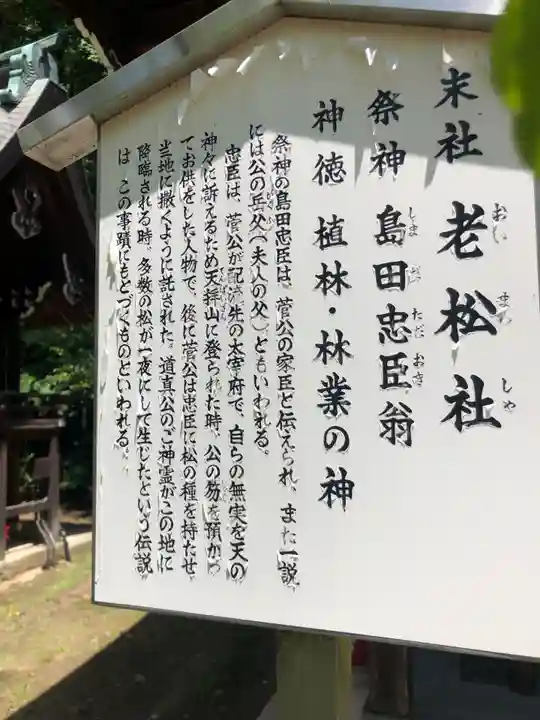 末社 老松社
おい まつ しゃ
祭神 島田忠臣翁
しま だ ただ おき
神徳 植林・林業の神
祭神の島田忠臣は、菅公の家臣と伝えられ、また一説
には公の岳父(夫人の父)ともいわれる。
忠臣は、菅公が配流先の太宰府で、自らの無実を天の
神々に訴えるため天拝山に登られた時、公の笏を預かっ
てお供をした人物で、後に菅公は忠臣に松の種を持たせ
当地に撒くように託された。道真公のご神霊がこの地に
降臨される時、多数の松が一夜にして生じたという伝説
は、この事蹟にもとづくものといわれる。